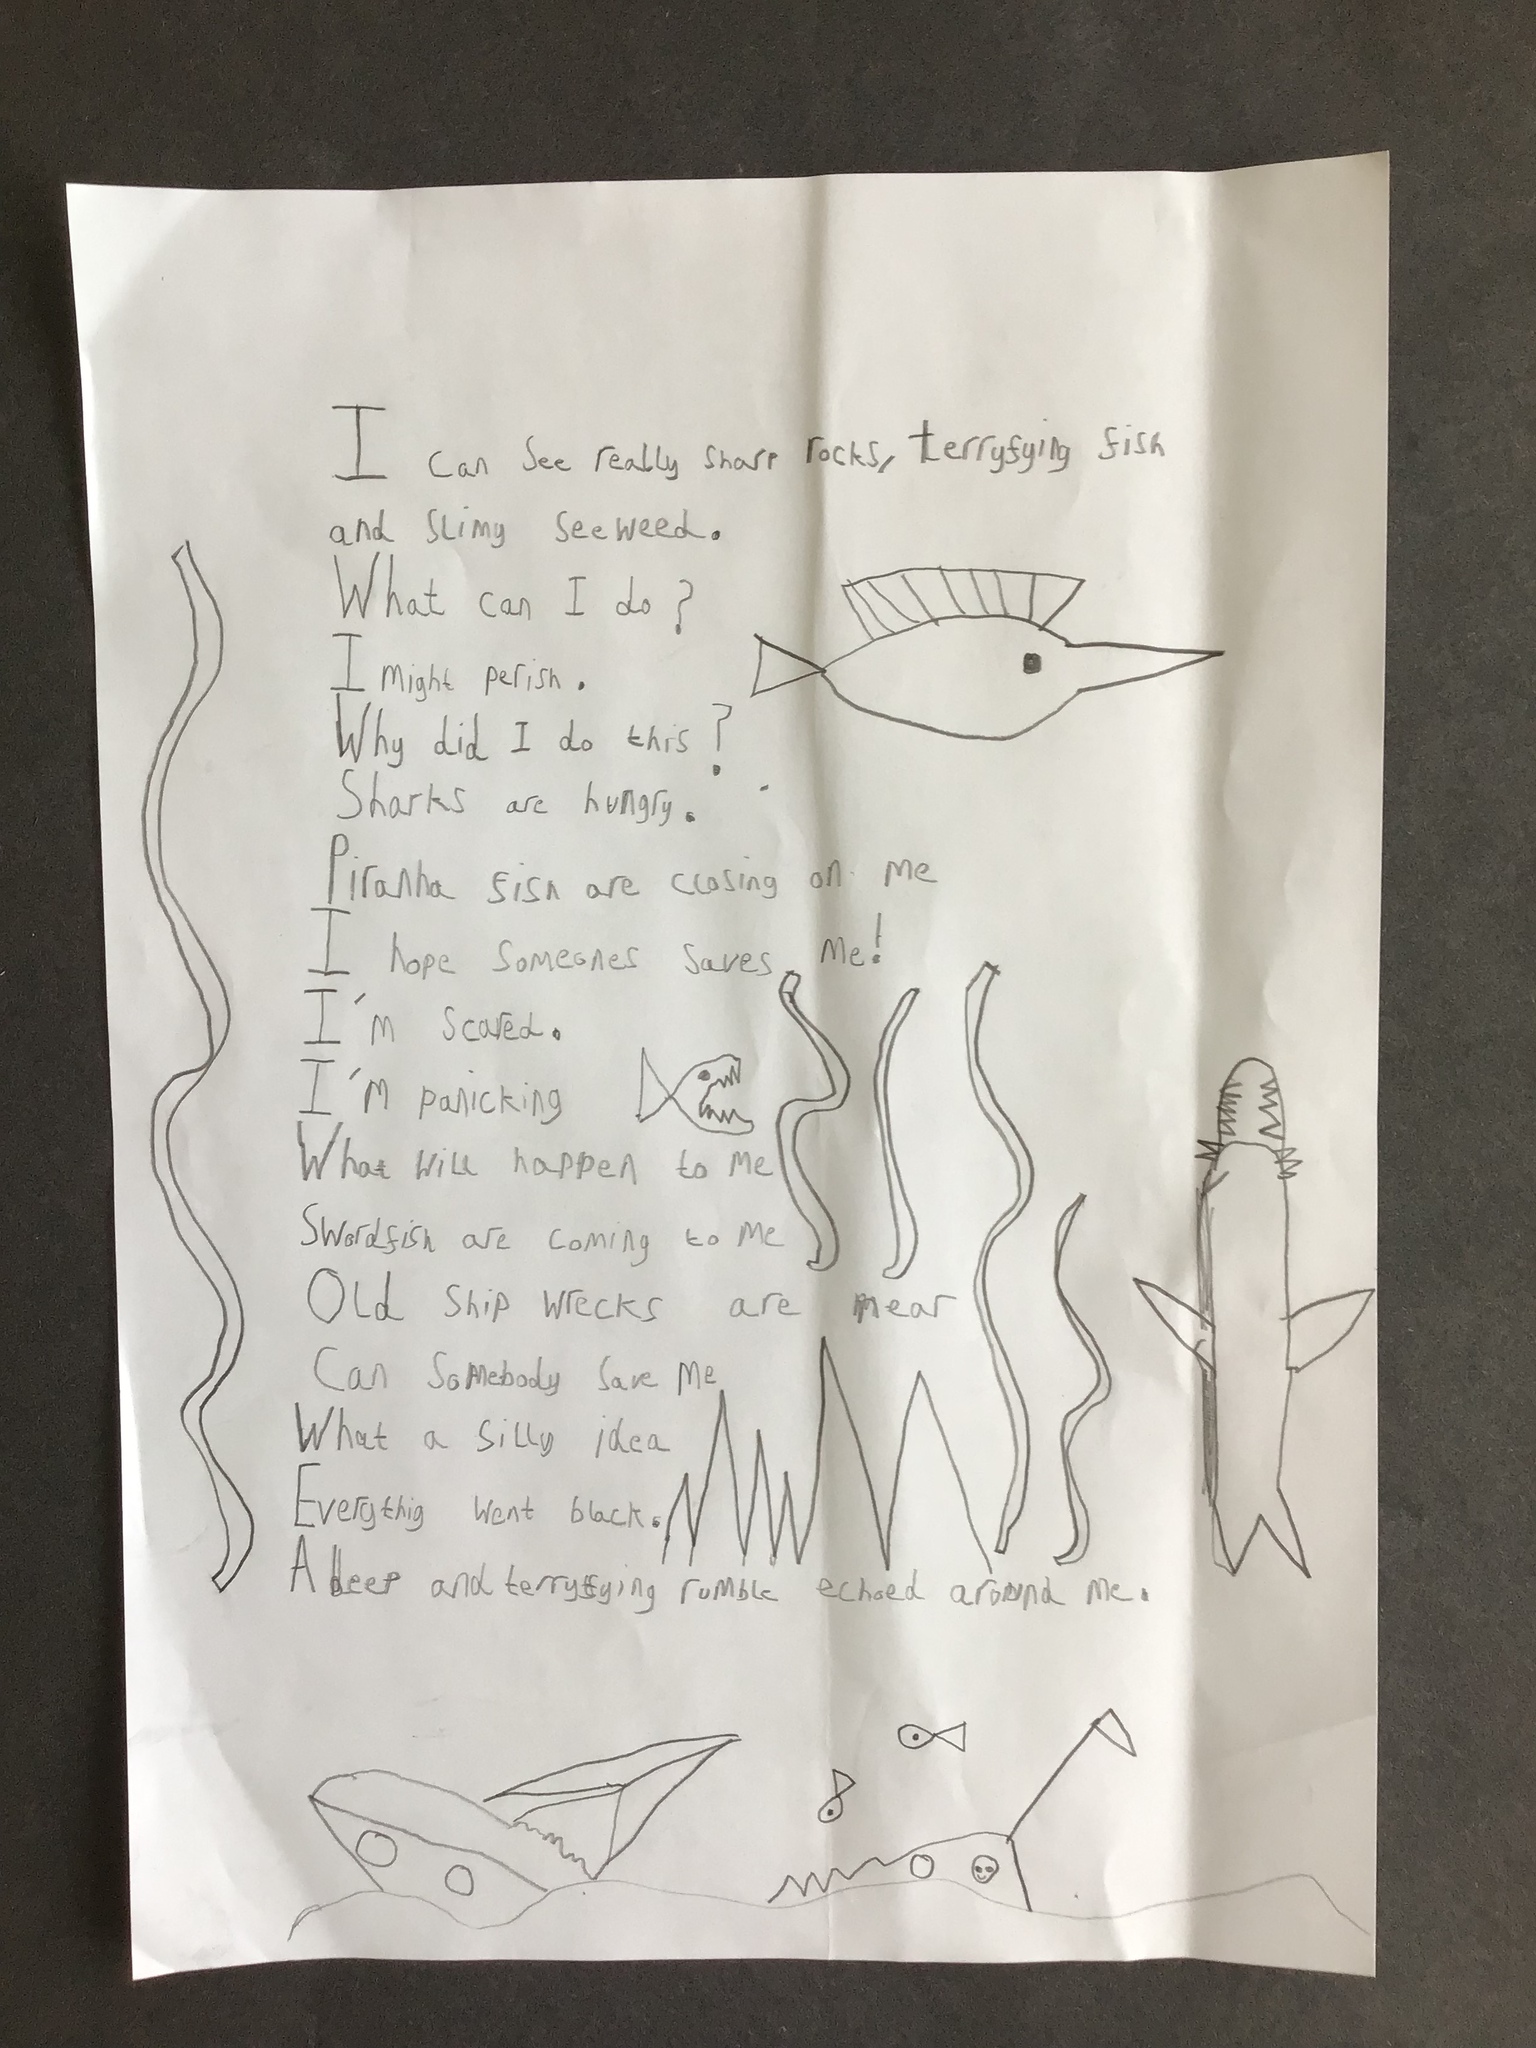 I can see really sharp rocks, terryfying fish
and slimy seeweed.
What can I do?
I might perish.
Why did I do this?
Sharks are hungry.
Piranha fish are closing on me
I hope someones saves me!
I'm scared.
I'm panicking
What will happen to me
Swordfish are coming to me
Old ship wrecks are near
Can somebody save me
What a silly idea
Everythig went black.
A deep and terryfying rumble echoed around me.